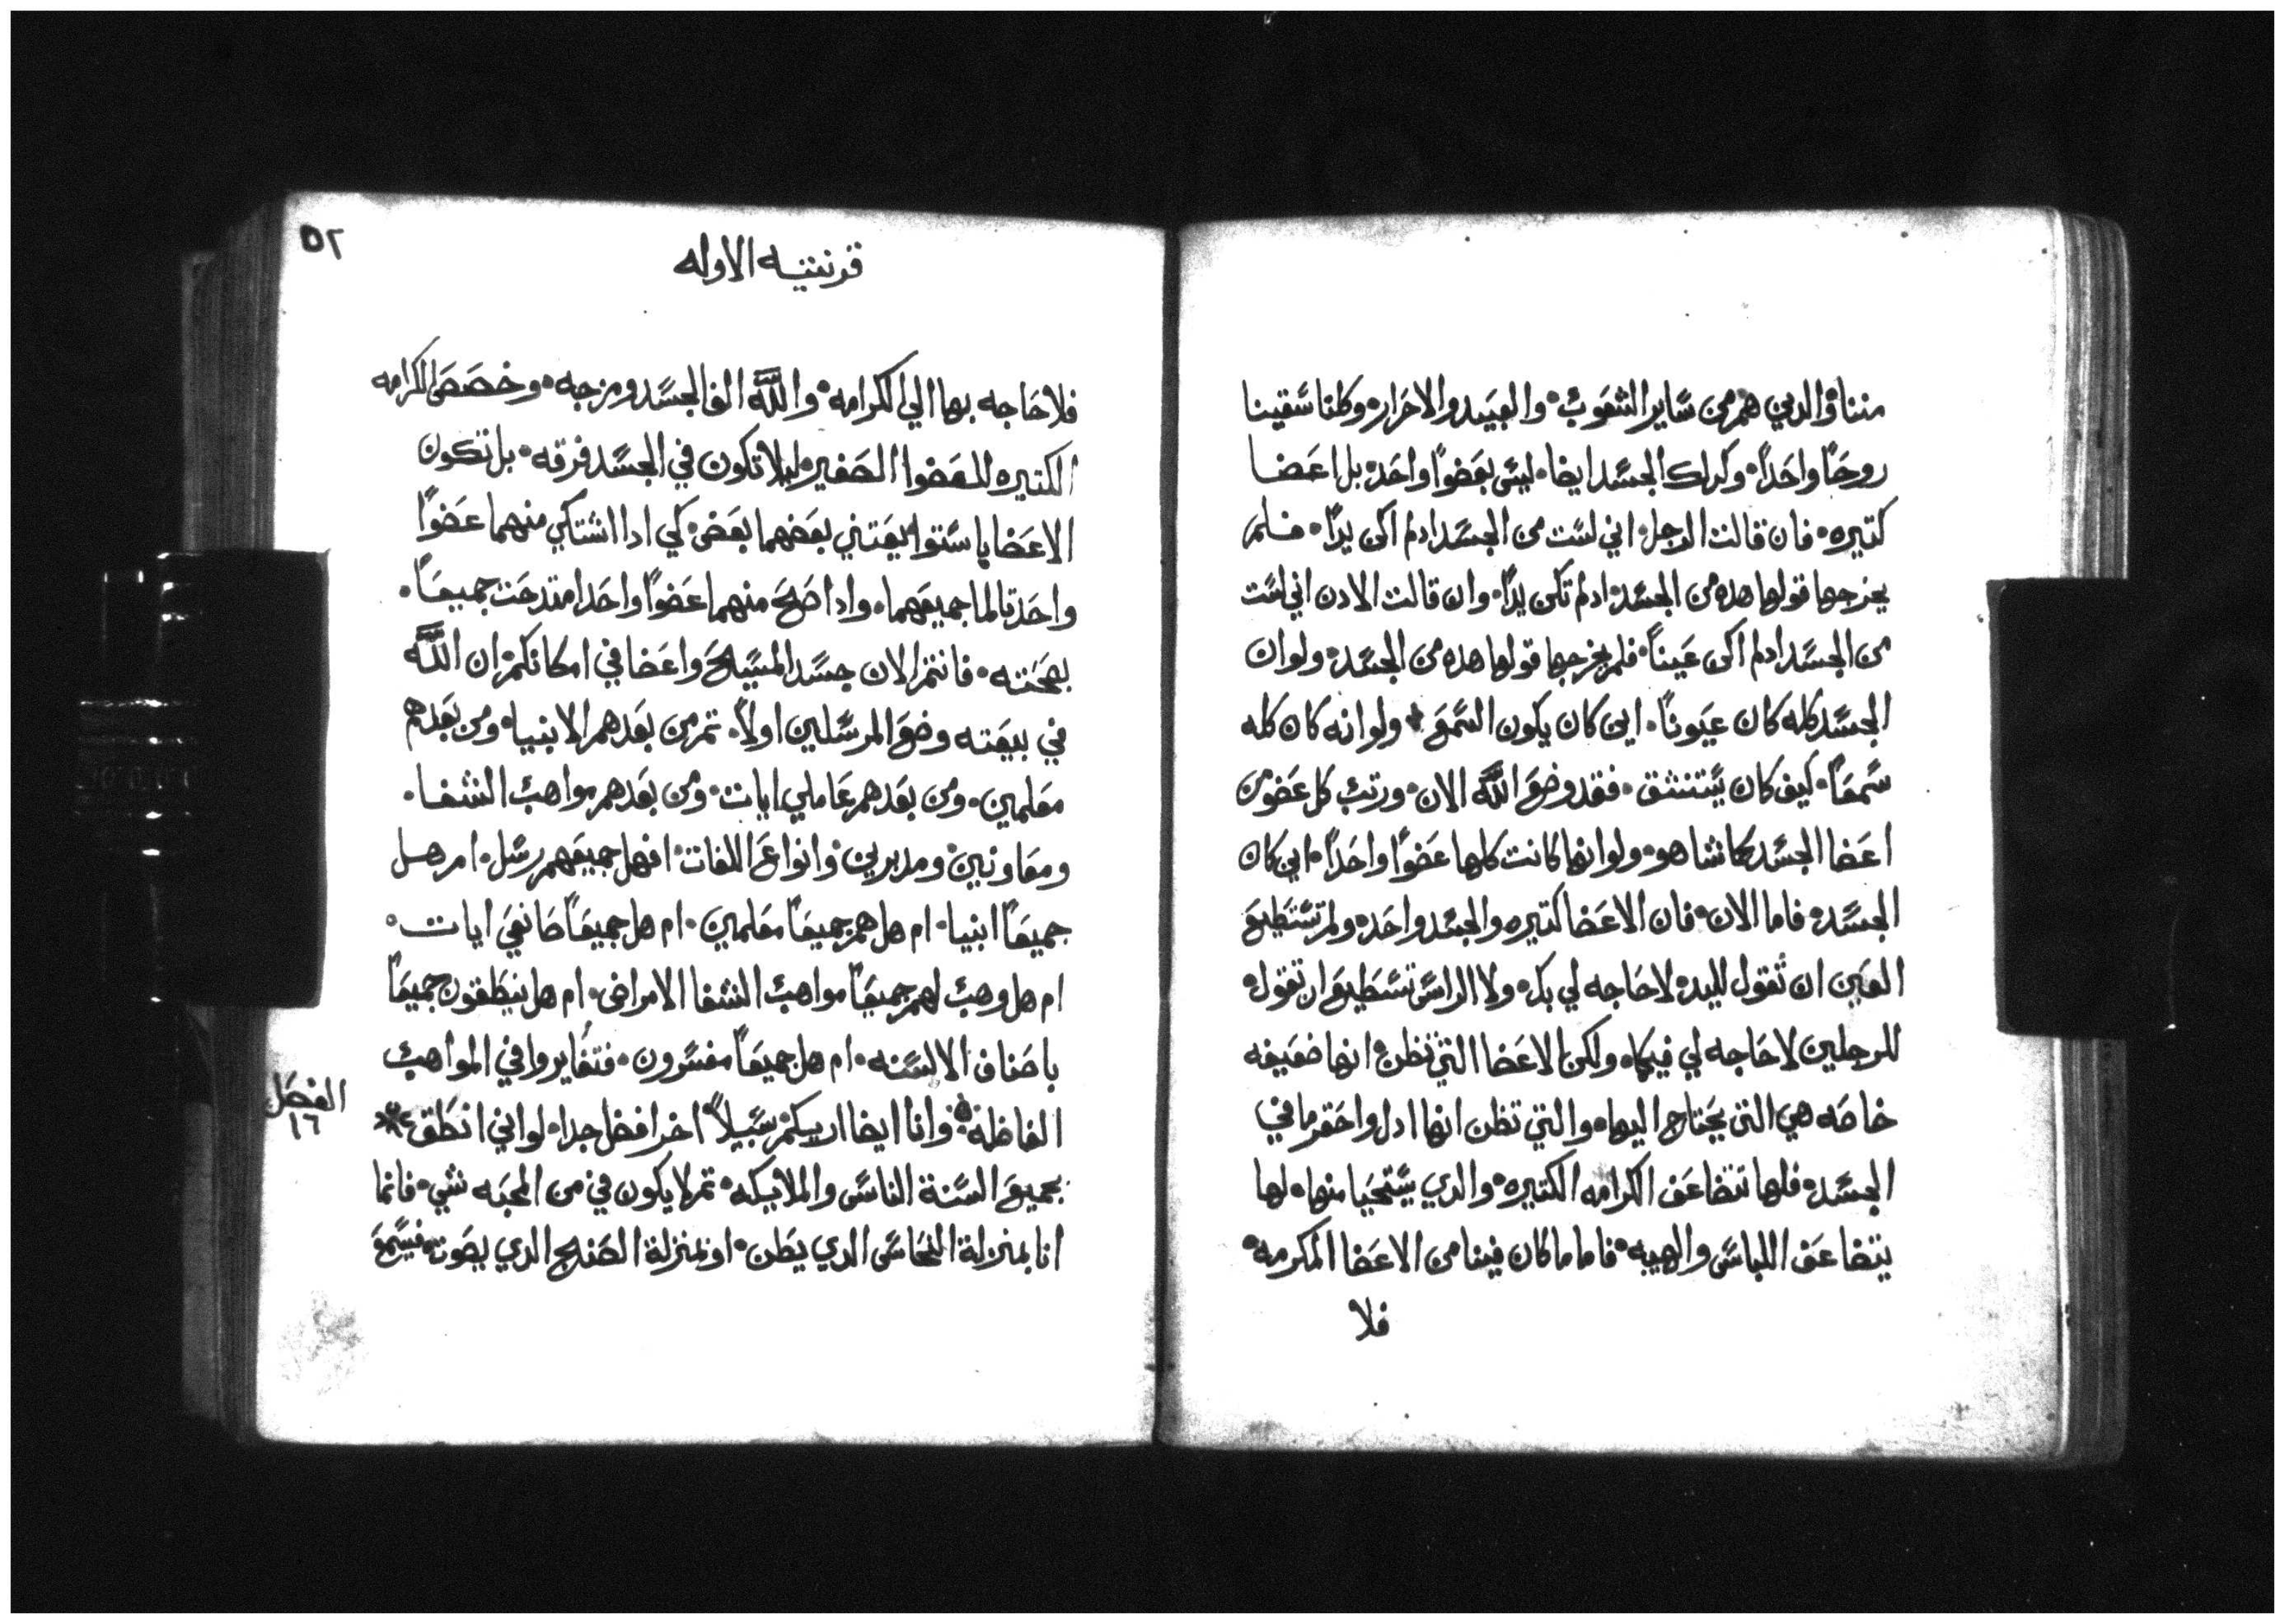 مننا والدين هم من ساير الشعوب والعبيد والاحرار وكلنا سقينا
روحًا واحدًا وكدلك الجسد ايضا ليس بعضوًا واحد بل اعضا
كتيره فان قالت الرجل اني لست من الجسد ادلم اكن يدًا فلم
يخرجها قولها هده من الجسد ادلم تكن يدًا وان قالت الادن اني لست
من الجسد ادلم اكن عينًا فلم يخرجها قولها هده من الجسد ولو ان
الجسد كله كان عيونًا اين كان يكون السمع ولو انه كان كله
سمعًا كيف كان يستنشق فقد وضع الله الان ورتب كل عضو من
اعضا الجسد كما شا هو ولو انها كانت كلها عضوًا واحدًا اين كان
الجسد فاما الان فان الاعضا كتيره والجسد واحد ولم تستطيع
العين ان تقول لليد لا حاجه لي بك ولا الراس تستطيع ان تقول
للرجلين لا حاجه لي فيكما ولكن الاعضا التي تظن انها ضعيفه
خاصه هي التي يحتاج اليها والتي تظن انها ادل واحقر ما في
الجسد فلها تتضاعف الكرامه الكتيره والدي يستحيا منها لها
يتضاعف اللباس والهيبه فاما ما كان فينا من الاعضا المكرمه
فلا
٥٢
قرنتيه الاوله
فلا حاجه بها الي الكرامه والله الف الجسد ومزجه وخصص الكرامه
الكتيره للعضوا الصغير ليلا تكون في الجسد فرقه بل تكون
الاعضا باستوا يعتني بعضهما بعض كي ادا اشتكي منهما عضوًا
واحد تالما جميعهما وادا صح منهما عضوًا واحدا امتدحت جميعًا
بصحته فانتم الان جسد المسيح واعضا في امكانكم ان الله
في بيعته وضع المرسلين اولاً تم من بعدهم الانبيا ومن بعدهم
معلمين ومن بعدهم عاملي ايات ومن بعدهم مواهب الشفا
ومعاونين ومدبرين وانواع اللغات افهل جميعهم رسل ام هل
جميعًا انبيا ام هل هم جميعًا معلمين ام هل جميعًا صانعي ايات
ام هل وهب لهم جميعًا مواهب الشفا الامراض ام هل ينطقون جميعًا
باصناف الالسنه ام هل جميعًا مفسرون فتغايروا في المواهب
الفاظله وانا ايضا اريكم سبيلاً اخر افضل جدا لو اني انطق
الفصل
١٦
بجميع السنة الناس والملايكه تم لا يكون في من المحبه شي فانما
انا بمنزلة النحاس الدي يطن او بمنزلة الصنج الدي يصوت فيسمع